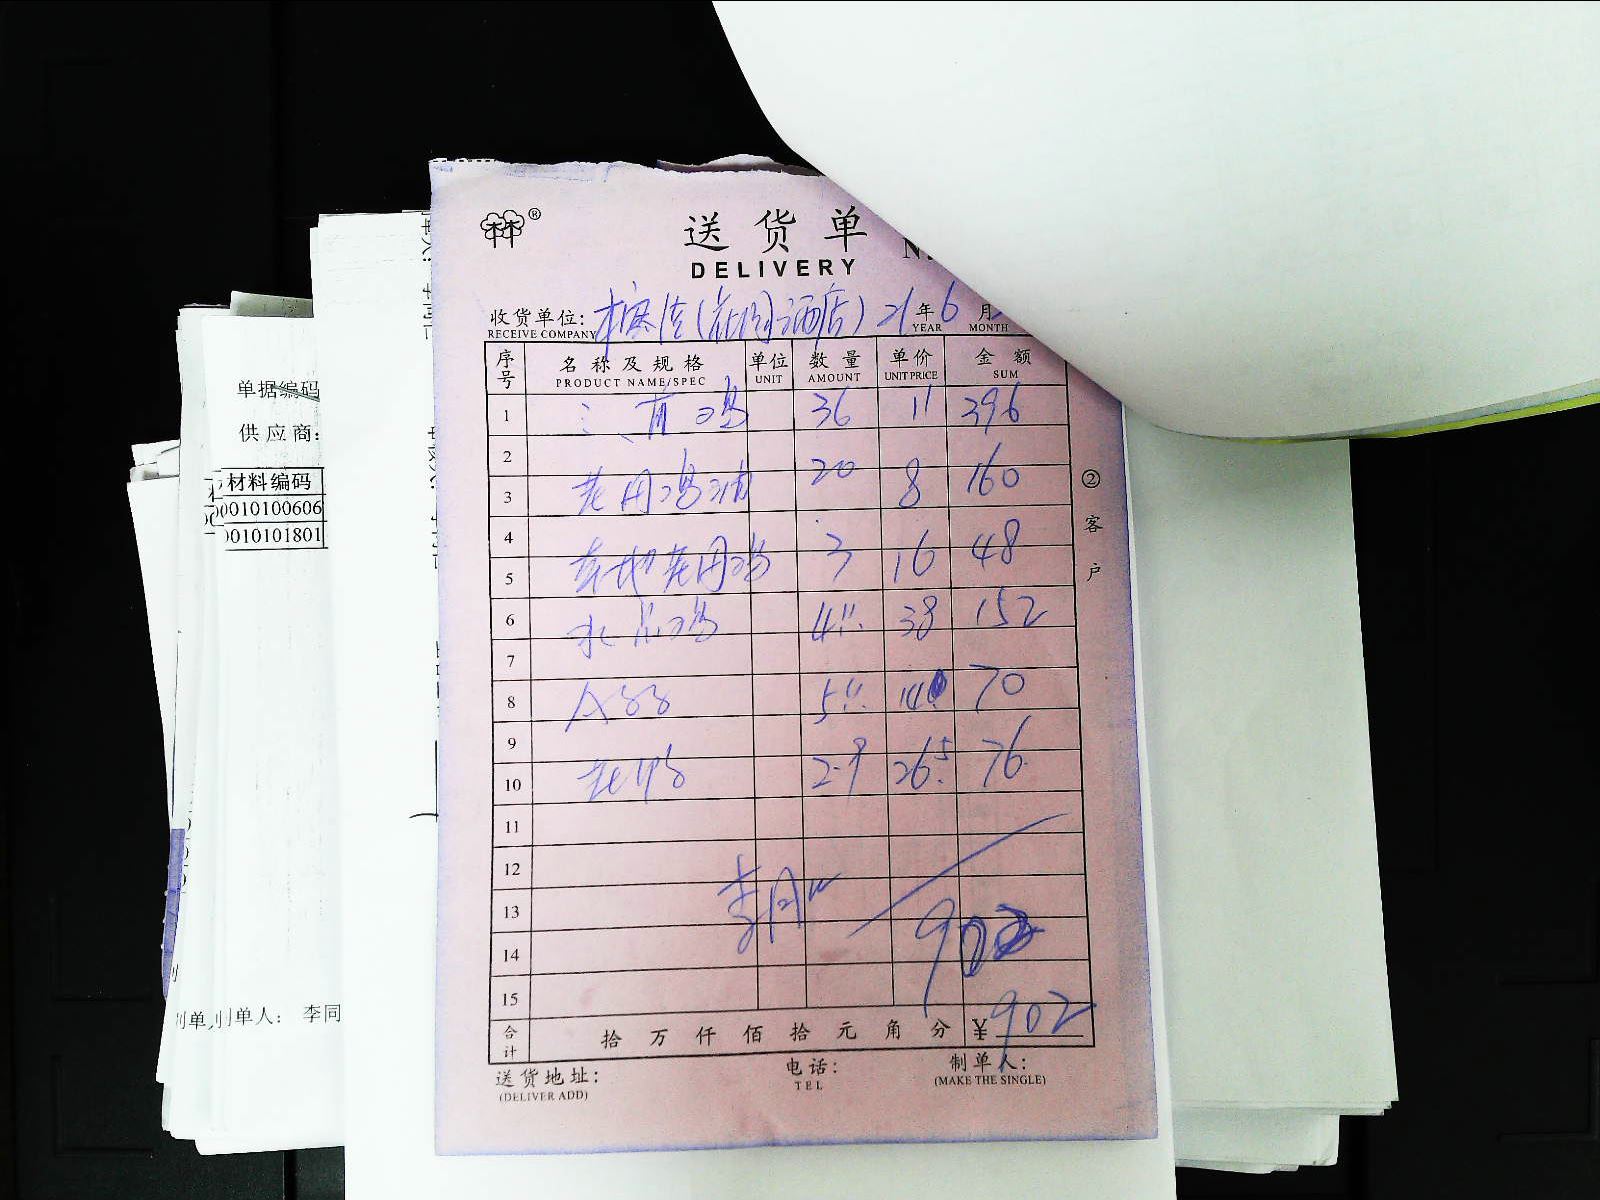 送货单
DELIVERY
收货单位: (花园酒店) 21年6月
RECEIVE COMPANY YEAR MONTH
序号 名称及规格 单位 数量 单价 金额
PRODUCT NAME/SPEC UNIT AMOUNT UNIT PRICE SUM
1 鸡 36 11 396
2
3 老用鸡 20 8 160
4
5 本地老用鸡 3 16 48
6 水 鸡 4 38 152
7
8 5 14 70
9
10 老鸭 2.9 26.5 76
11
12
13 902
14
15
合计 拾万仟佰拾元角分 ¥902
送货地址: 电话: 制单人:
(DELIVER ADD) TEL (MAKE THE SINGLE)
②客户
单据编码
供应商:
材料编码
0010100606
0010101801
制单人: 李同